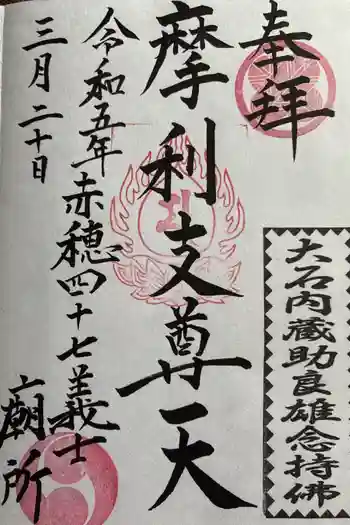 奉拝
大石内蔵助良雄念持佛
摩利支尊天
令和五年赤穂四十七義士廟所
三月二十日